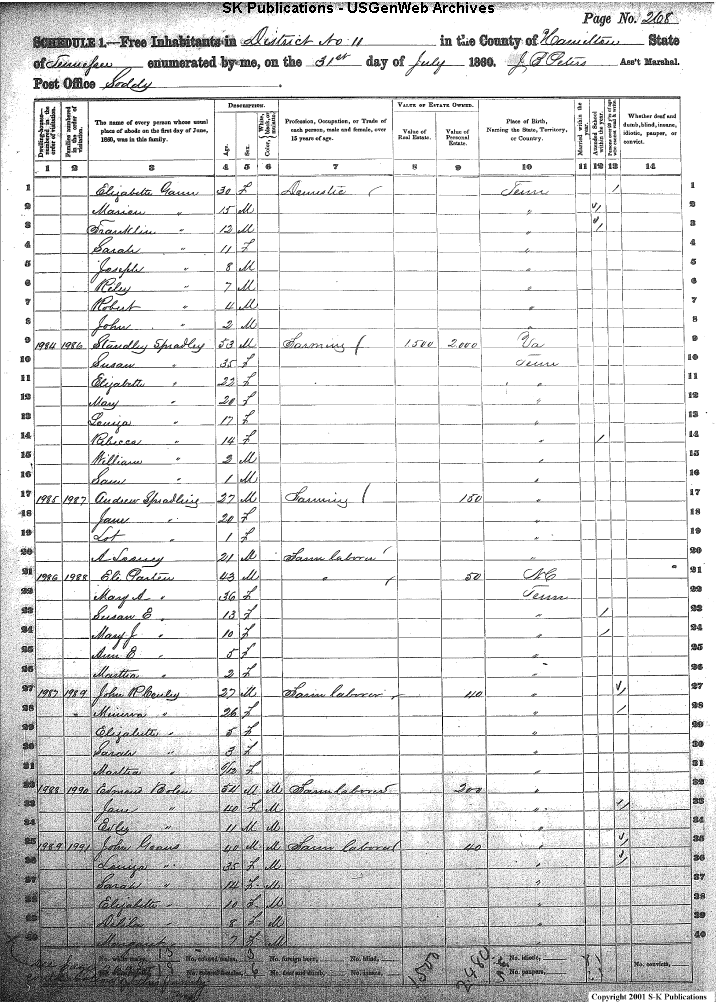 SK Publications - USGenWeb Archives
Page No. 268
SCHEDULE 1.—Free Inhabitants in District No 11 in the County of Hamilton State
of Tennessee enumerated by me, on the 31st day of July 1860. J B Peters Ass't Marshal.
Post Office Soddy
Dwelling-houses—numbered in the order of visitation. Families numbered in the order of visitation. The name of every person whose usual place of abode on the first day of June, 1860, was in this family. DESCRIPTION. Age. Sex. Color, White, black, or mulatto. Profession, Occupation, or Trade of each person, male and female, over 15 years of age. VALUE OF ESTATE OWNED. Value of Real Estate. Value of Personal Estate. Place of Birth, Naming the State, Territory, or Country. Married within the year. Attended School within the year. Whether deaf and dumb, blind, insane, idiotic, pauper, or convict.
1 2 3 4 5 6 7 8 9 10 11 12 13 14
1 Elizabeth Gann 30 F Domestic Tenn / 1
2 Marion " 15 M " / 2
3 Franklin " 12 M " / 3
4 Sarah " 11 F " 4
5 Joseph " 8 M " 5
6 Riley " 7 M " 6
7 Robert " 4 M " 7
8 John " 2 M " 8
9 1984 1986 Standley Spradley 53 M Farming 1500 2000 Va 9
10 Susan " 35 F Tenn 10
11 Elizabeth " 22 F " 11
12 Mary " 20 F " 12
13 Louiza " 17 F " 13
14 Rebecca " 14 F " / 14
15 William " 2 M " 15
16 Sam " 1 M " 16
17 1985 1987 Andrew Spradling 27 M Farming 150 " 17
18 Jane " 20 F " 18
19 Lot " 1 F " 19
20 A 21 M Farm laborer " 20
21 1986 1988 Eli 43 M " 50 NC 21
22 Mary A " 36 F Tenn 22
23 Susan E " 13 F " / 23
24 Mary J " 10 F " / 24
25 Ann E " 5 F " 25
26 Martha " 2 F " 26
27 1987 1989 John R 27 M Farm laborer 40 " / 27
28 " Minerva " 26 F " / 28
29 Elizabeth " 5 F " 29
30 Sarah " 3 F " 30
31 Martha " F " 31
32 1988 1990 Edmond Bolen 54 M M Farm laborer 200 " 32
33 Jane " 40 F M " / 33
34 " 11 M M " 34
35 1989 1991 John 40 M M Farm laborer 40 " / 35
36 Louiza " 35 F M " / 36
37 Sarah " 14 F M " 37
38 Elizabeth " 10 F M " 38
39 Delila " 8 F M " 39
40 Margaret " 7 F M " 40
No. white males, 13 No. colored males, 3 No. foreign born, No. blind, 1500 2480 No. idiotic, No. convicts,
No. colored females, 6 No. deaf and dumb, No. insane, No. paupers,
Copyright 2001 S-K Publications